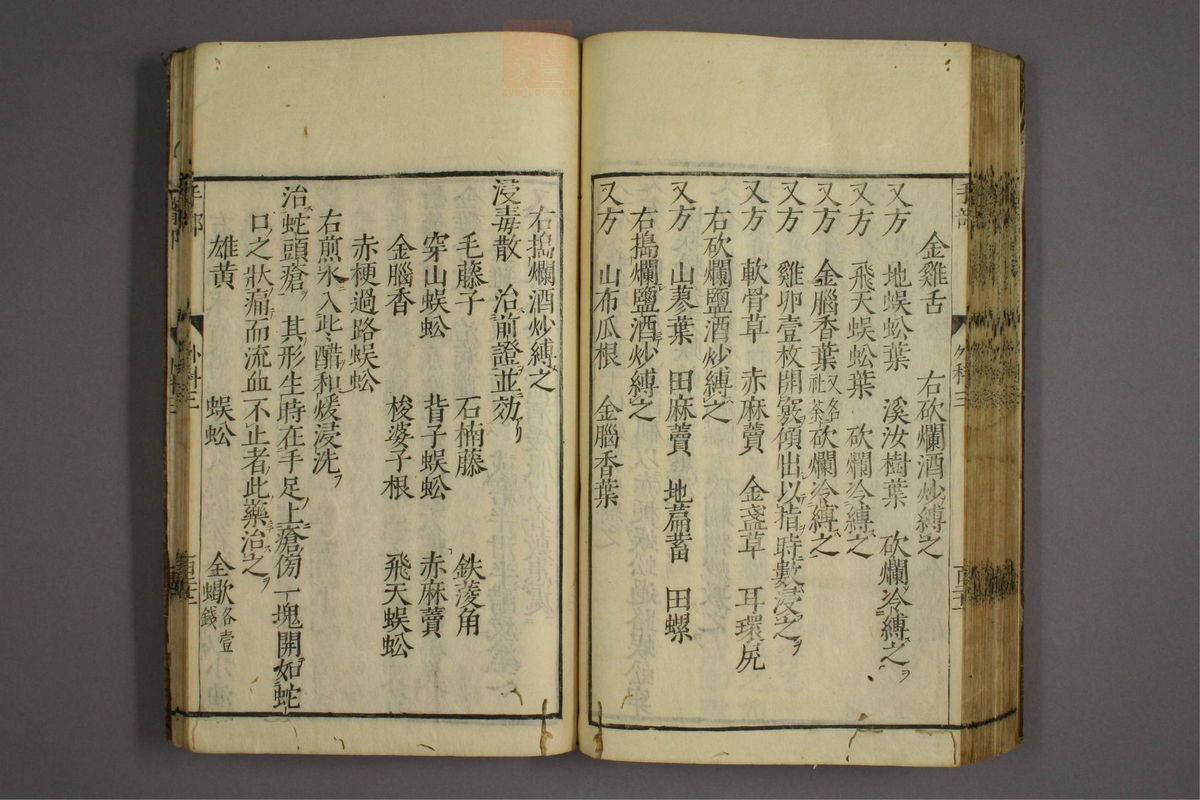 金雞舌　右砍爛酒炒縛之
又方　地蜈蚣葉　溪汝樹葉　砍爛冷縛之
又方　飛天蜈蚣葉　砍爛冷縛之
又方　金腦香葉又名社茶砍爛冷縛之
又方　雞卵壹枚開竅傾出以指時數浸之
又方　軟骨草　赤麻薋　金盞草　耳環屄
右砍爛鹽酒炒縛之
又方　山蓼葉　田麻薋　地萹蓄　田螺
右搗爛鹽酒炒縛之
又方　山布瓜根　金腦香葉
右搗爛酒炒縛之
浸毒散　治前證並効
毛藤子　石楠藤　鉄菱角
穿山蜈蚣　背子蜈蚣　赤麻薋
金腦香　梭婆子根　飛天蜈蚣
赤梗過路蜈蚣
右煎水入些醋和煖浸洗
治蛇頭瘡　其形生時在手足上瘡傍一塊開如蛇
口之狀痛而流血不止者此藥治之
雄黃　蜈蚣　全蝎各壹錢
手部　外科三